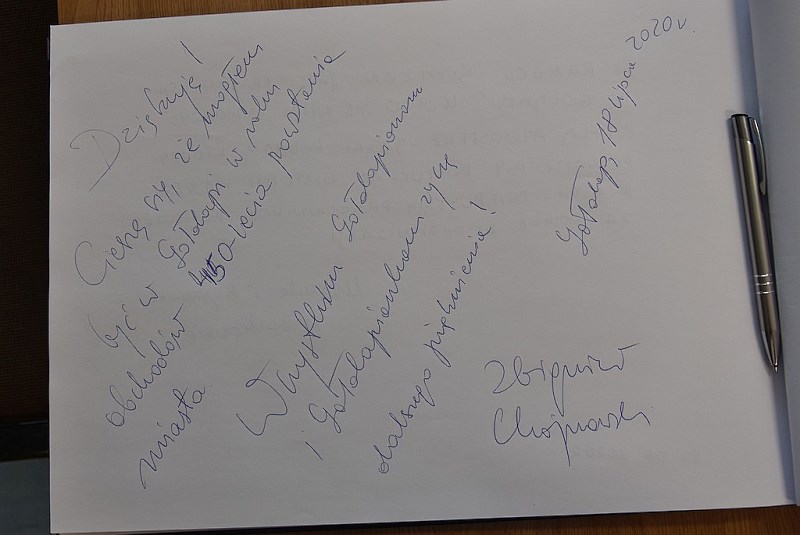 Dziękuję!
Cieszę się, że mogłem
być w Gołdapi w roku
obchodów 450-lecia powstania
miasta
Wszystkim Gołdapianom
i Gołdapiankom życzę
dalszego pięknienia!
Zbigniew
Chojnowski
Gołdap, 18 lipca 2020 r.